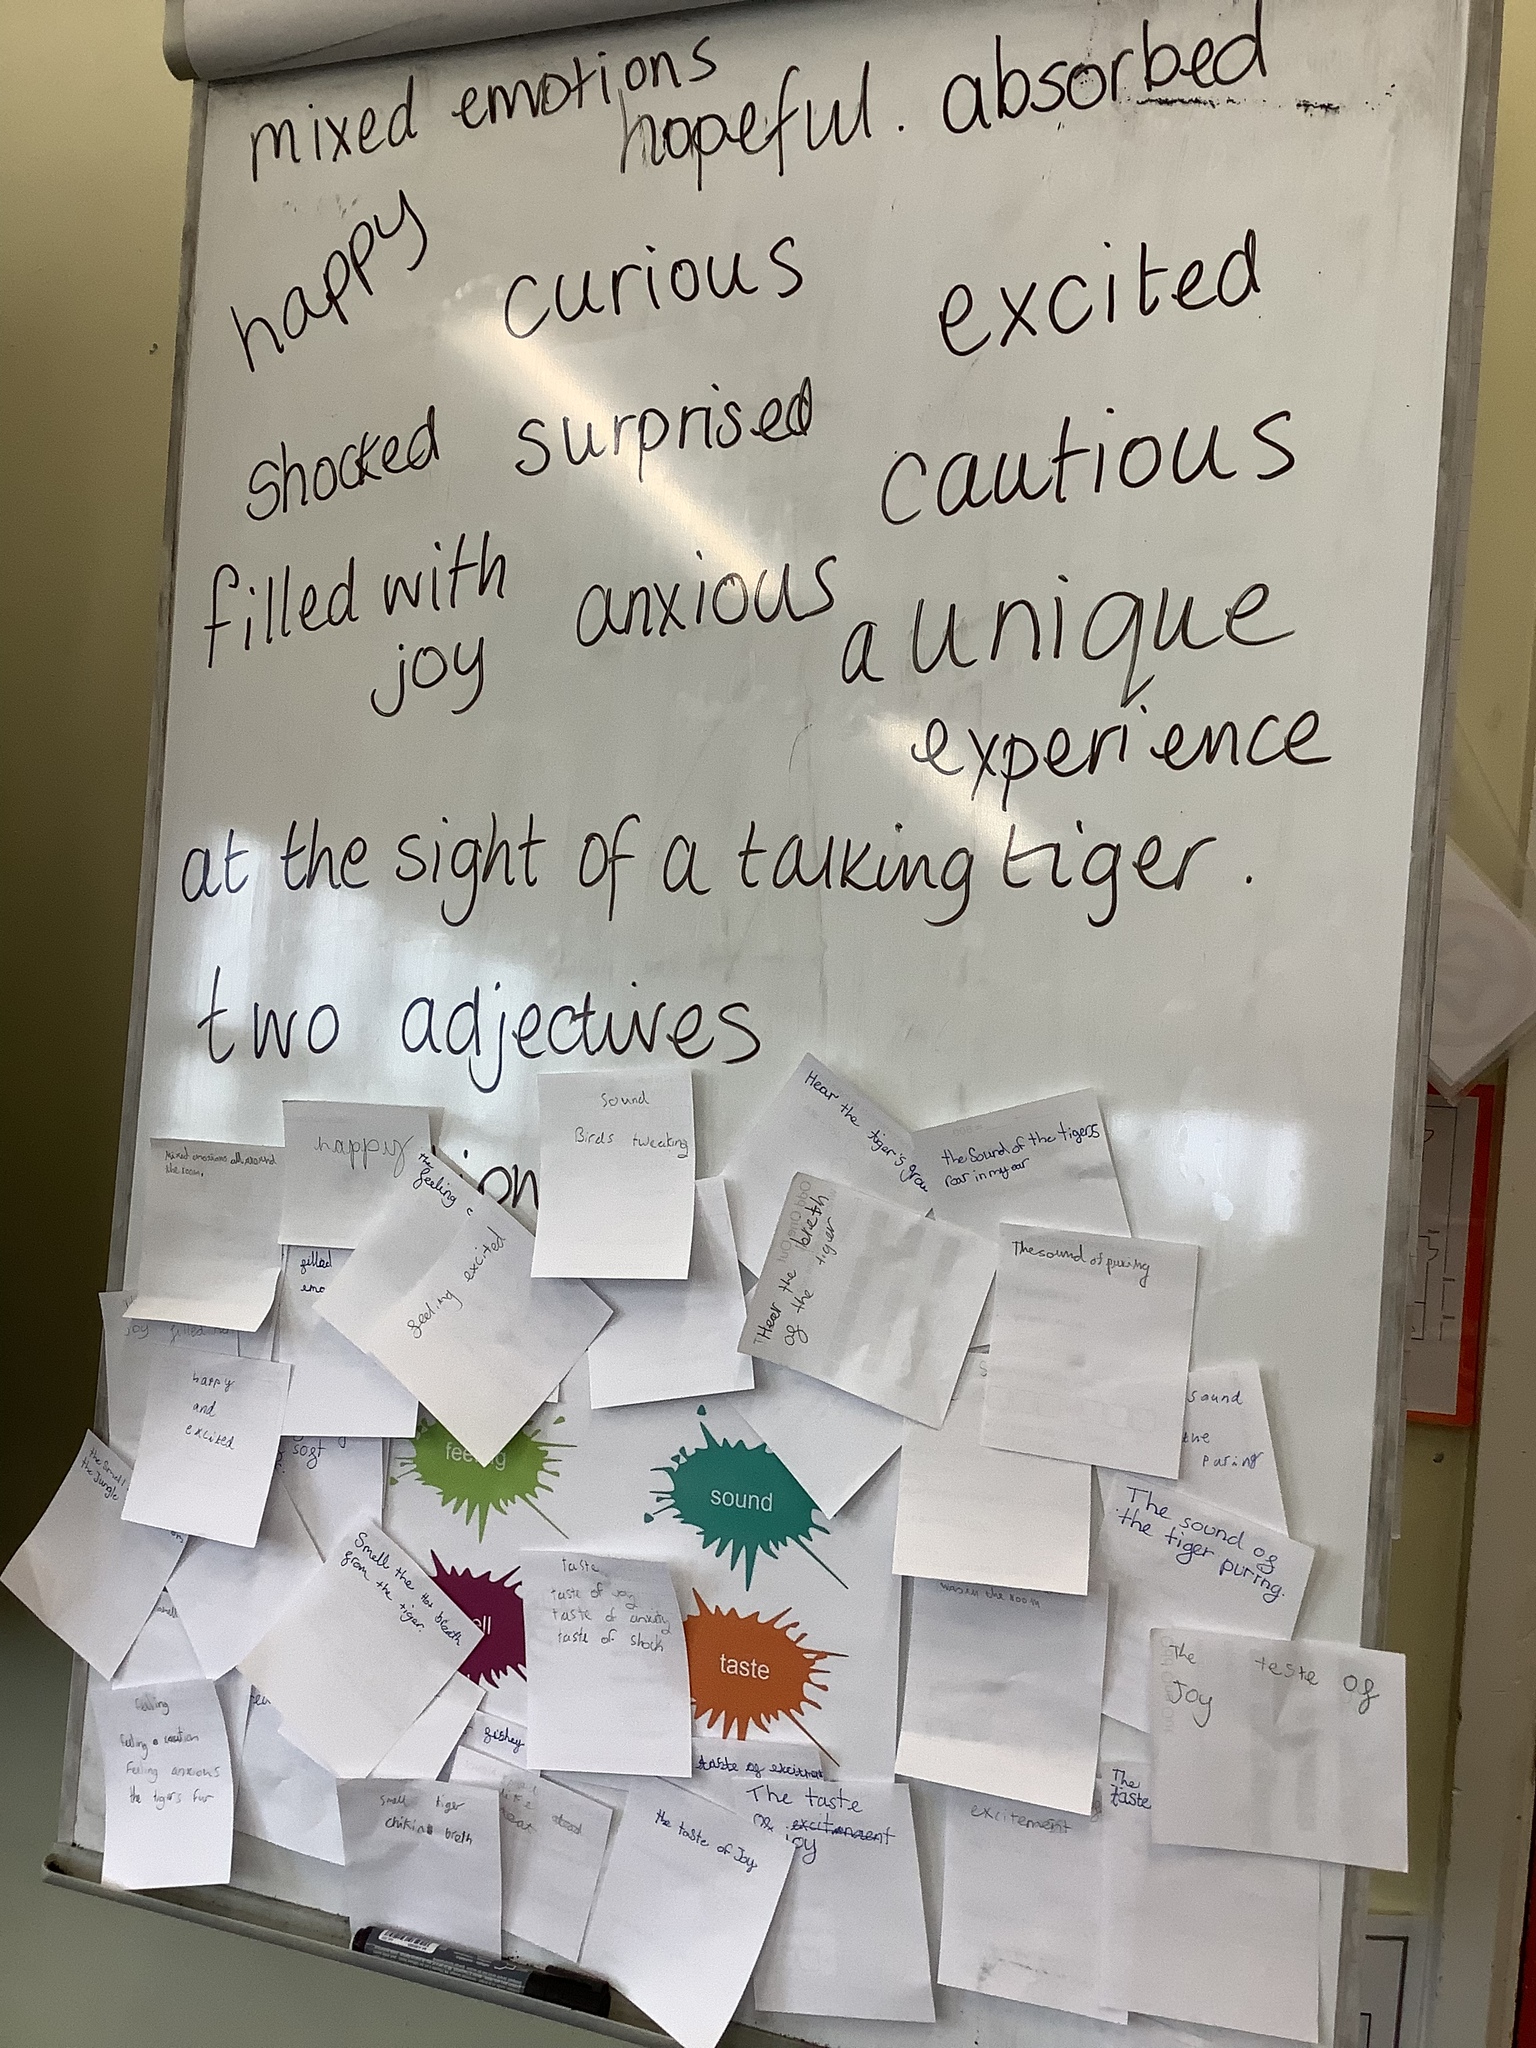 mixed emotions hopeful. absorbed
happy curious excited
shocked surprised cautious
filled with joy anxious a unique
experience
at the sight of a talking tiger.
two adjectives
Mixed emotions all around
the room.
happy
the
feeling
feeling excited
Sound
Birds tweaking
Hear the tiger's
the Sound of the tigers
roar in my ear
Hear the breth
of the tiger
The sound of puring
filled
joy filled
happy
and
excited
soft
the Smell
the Jungle
feeling
sound
sound
the
puring
The sound of
the tiger puring.
Smell the hot breath
from the tiger.
taste
taste of joy
taste of anxity
taste of shock
taste
was in the room
The teste of
Joy
feeling
Feeling anxious
the tigers fur
fishey
smell tiger
breth
taste of
The taste
excitement
joy
the taste of Joy
excitement
The
taste